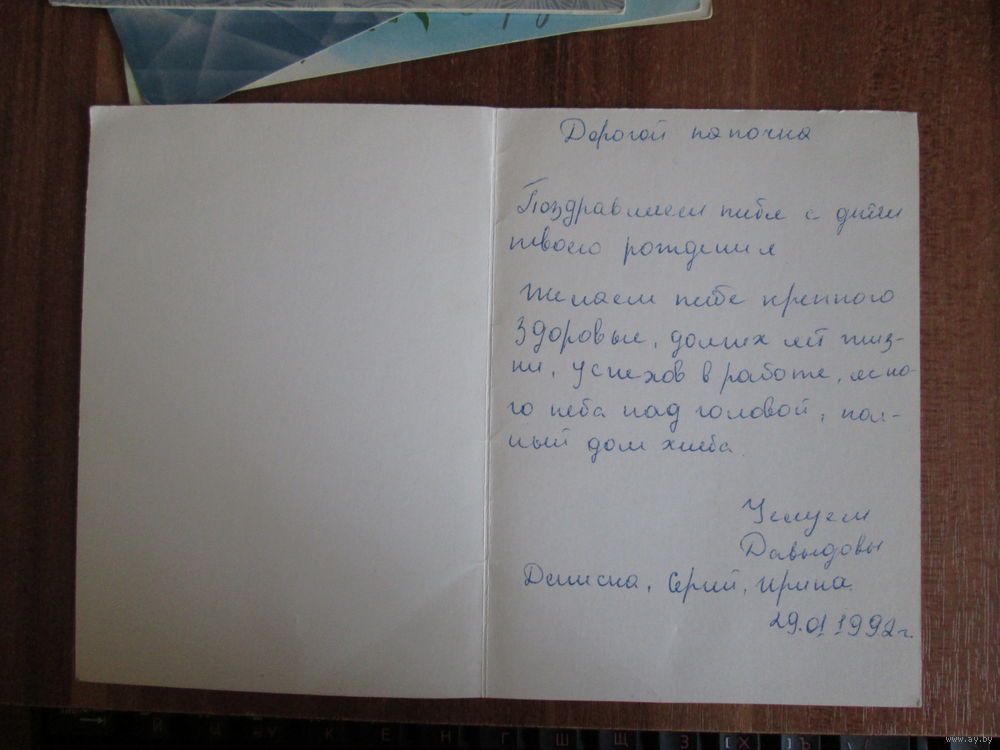 Дорогой папочка
Поздравляем тебя с днём
твоего рождения
Желаем тебе крепкого
здоровье, долгих лет жиз-
ни, успехов в работе, ясно-
го неба над головой, пол-
ный дом хлеба.
Целуем
Давыдовы
Дениска, Сергий, Ирина.
29.01 1992г.
Й Ц У К Е Н Г Ш Щ З Х Ъ
www.ay.by